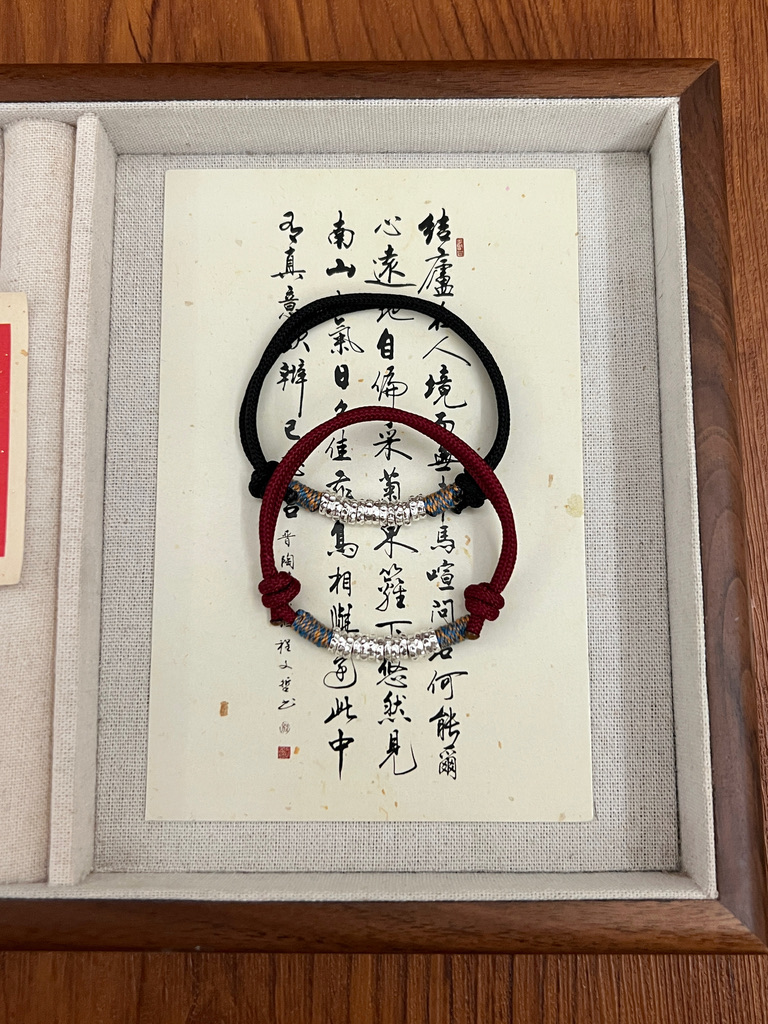 結廬在人境而無車馬喧問君何能爾
心遠地自偏采菊東籬下悠然見
南山山氣日夕佳飛鳥相與還此中
有真意欲辨已忘言
晉陶
程文哲书